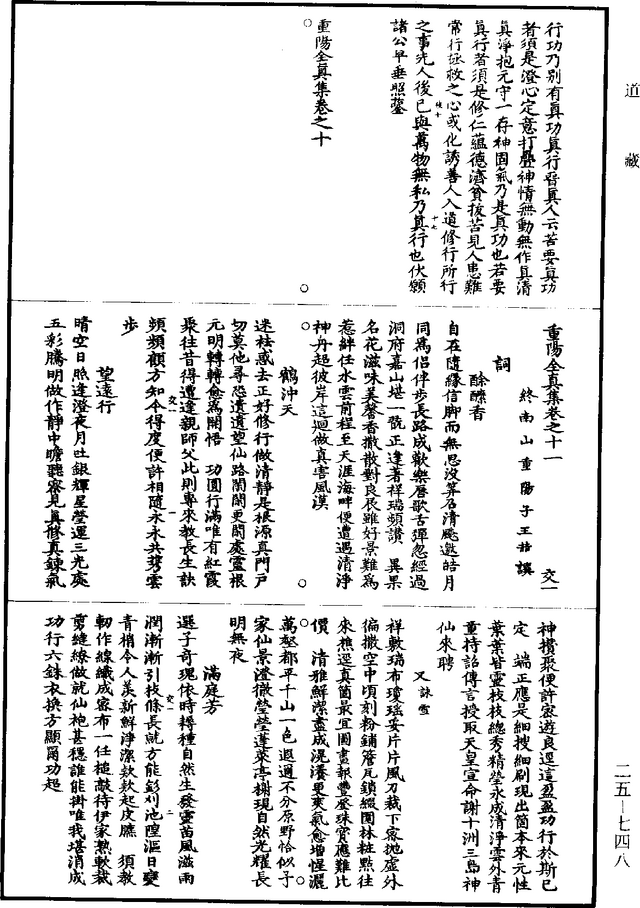 道藏
行功乃別有真功真行晉真人云若要真功
者須是澄心定意打疊神情無動無作真清
真淨抱元守一存神固氣乃是真功也若要
真行者須是修仁蘊德濟貧拔苦見人患難
常行拯救之心或化誘善人入道修行所行
之事先人後己與萬物無私乃真行也伏願
諸公早垂照鑒
重陽全真集卷之十
重陽全真集卷之十一 交一
終南山重陽子王嚞撰
詞
酴醾香
自在隨緣信腳而無思沒算召清颷邀皓月
同為侶伴步長路成歡樂唇歌舌彈忽經過
洞府嘉山堪一翫正逢著祥瑞頻讚 異果
名花滋味美馨香撒散對良辰雖好景難為
惹絆任水雲前程至天涯海畔便遭遇清淨
神丹超彼岸這迴做真害風漢
鶴沖天
迷袪惑去正好修行做清靜是根源真門戶
切莫他尋恐遺遺望仙路閑閑更閑處靈根
元明轉轉愈為開悟 功圓行滿唯有紅霞
聚往昔得遭逢親師父此則專來教長生訣
頻頻顧方知今得度便許相隨永永共攜雲
步
望遠行
晴空日照逢澄夜月吐銀輝星瑩運三光處
五彩騰明做作靜中瞻聽察見真修真鍊氣
神攢聚便許密遊良逕這盈盈功行於斯已
定 端正應是細搜細刷現出箇本來元性
葉葉皆靈枝枝總秀精瑩永成清淨雲外青
童持詔傳言授取天皇宣命謝十洲三島神
仙來聘
又 詠雪
祥敷瑞布瓊瑤妥片片風刀裁下密拋虛外
徧撒空中頃刻粉鋪簷瓦鎖綴園林粧點往
來樵逕真箇最宜圖畫報豐登珠寶應難比
價 清雅鮮潔盡成洗湊更爽氣愈增惺灑
萬壑都平千山一色遐邇不分原野恰似子
家仙景澄徹瑩瑩蓬萊亭榭現自然光耀長
明無夜
滿庭芳
選子奇瑰依時轉種自然生發靈苗風滋雨
潤漸漸引枝條長就方能彭刈池隍漚日變
青梢令人羨新鮮淨潔欵欵起皮臕 須教
韌作線纖成密布一任槌敲待伊家熟軟裁
剪縫繚做就仙袍甚穩誰能掛唯我堪消成
功行六銖衣換方顯爾功超
二五—七四八